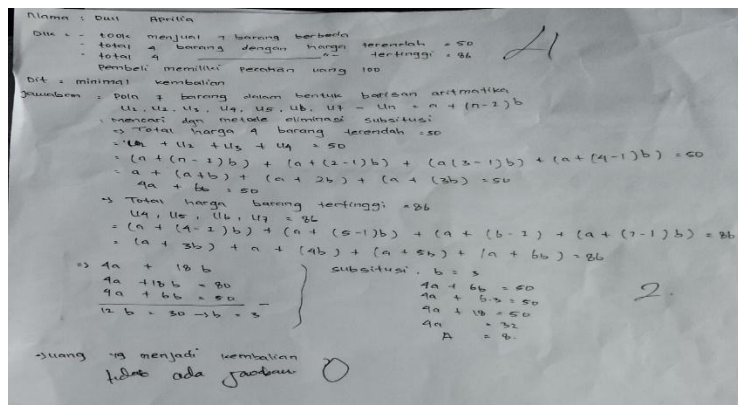 Nama : Dwi Aprilia
Dik = - toko menjual 7 barang berbeda
- total 4 barang dengan harga terendah = 50
- total 4 —"— tertinggi = 86
Pembeli memiliki pecahan uang 100
4
Dit = minimal kembalian
Jawaban = Pola 7 barang dalam bentuk barisan aritmatika
U1, U2, U3, U4, U5, U6, U7 - Un = a + (n-1)b
- mencari dgn metode eliminasi subsitusi
=> Total harga 4 barang terendah = 50
= U1 + U2 + U3 + U4 = 50
= (a + (n - 1)b) + (a + (2-1)b) + (a (3-1)b) + (a + (4-1)b) = 50
= a + (a+b) + (a + 2b) + (a + (3b) = 50
4a + 6b = 50
=> Total harga barang tertinggi = 86
U4, U5, U6, U7 = 86
= (a + (4-1)b) + (a + (5-1)b) + (a + (6-1) + (a + (7-1)b) = 86
= (a + 3b) + a + (4b) + (a + 5b) + (a + 6b) = 86
=> 4a + 18b
4a + 18b = 80
4a + 6b = 50 -
12b = 30 -> b = 3
subsitusi, b = 3
4a + 6b = 50
4a + 6.3 = 50
4a + 18 = 50
4a = 32
A = 8.
2.
=> uang yg menjadi kembalian
tidak ada jawaban 0